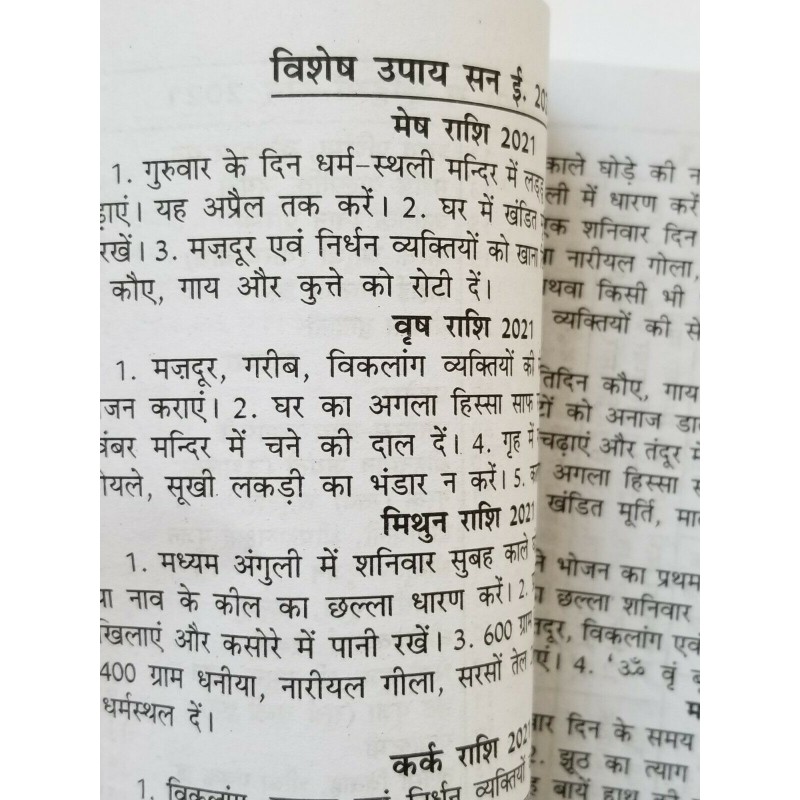 विशेष उपाय सन ई.
मेष राशि 2021
1. गुरुवार के दिन धर्म-स्थली मन्दिर में
यह अप्रैल तक करें। 2. घर में खंडित
रखें। 3. मज़दूर एवं निर्धन व्यक्तियों को खाना
कौए, गाय और कुत्ते को रोटी दें।
वृष राशि 2021
1. मज़दूर, गरीब, विकलांग व्यक्तियों की
कराएं। 2. घर का अगला हिस्सा साफ
मन्दिर में चने की दाल दें। 4. गृह में
सूखी लकड़ी का भंडार न करें। 5.
मिथुन राशि 2021
1. मध्यम अंगुली में शनिवार सुबह काले
नाव के कील का छल्ला धारण करें। 2.
खिलाएं और कसोरे में पानी रखें। 3. 600 ग्राम
400 ग्राम धनीया, नारीयल गीला, सरसों तेल
धर्मस्थल दें।
कर्क राशि 2021
1. विकलांग निर्धन व्यक्तियों
काले घोड़े की
में धारण करें
शनिवार दिन
नारीयल गोला,
किसी भी
व्यक्तियों की
कौए, गाय
को अनाज
चढ़ाएं और तंदूर में
अगला हिस्सा
खंडित मूर्ति,
भोजन का प्रथम
छल्ला शनिवार
विकलांग एवं
4. 'ॐ वृं
दिन के समय
2. झूठ का त्याग
बायें हाथ की